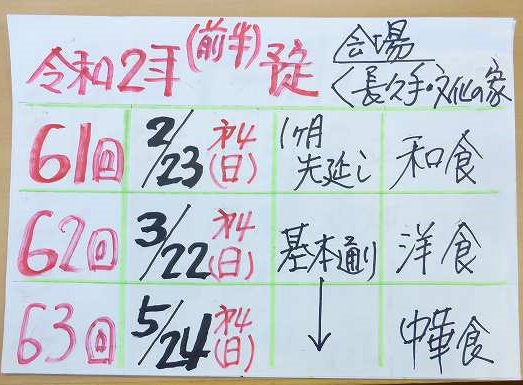 令和2年(前半)予定
会場
〈長久手・文化の家
61回 2/23 才4(日) 1ヶ月先延し 和食
62回 3/22 才4(日) 基本通り 洋食
63回 5/24 才4(日) ↓ 中華食